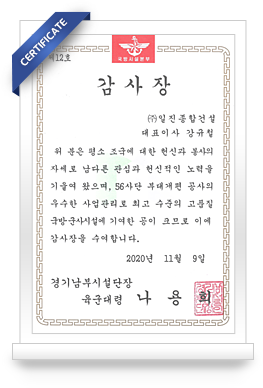 CERTIFICATE
국방시설본부
제12호
감사장
(주)일진종합건설
대표이사 강규철
위 분은 평소 조국에 대한 헌신과 봉사의
자세로 남다른 관심과 헌신적인 노력을
기울여 왔으며, 56사단 부대개편 공사의
우수한 사업관리로 최고 수준의 고품질
국방·군사시설에 기여한 공이 크므로 이에
감사장을 수여합니다.
2020년 11월 9일
경기남부시설단장
육군대령 나용희